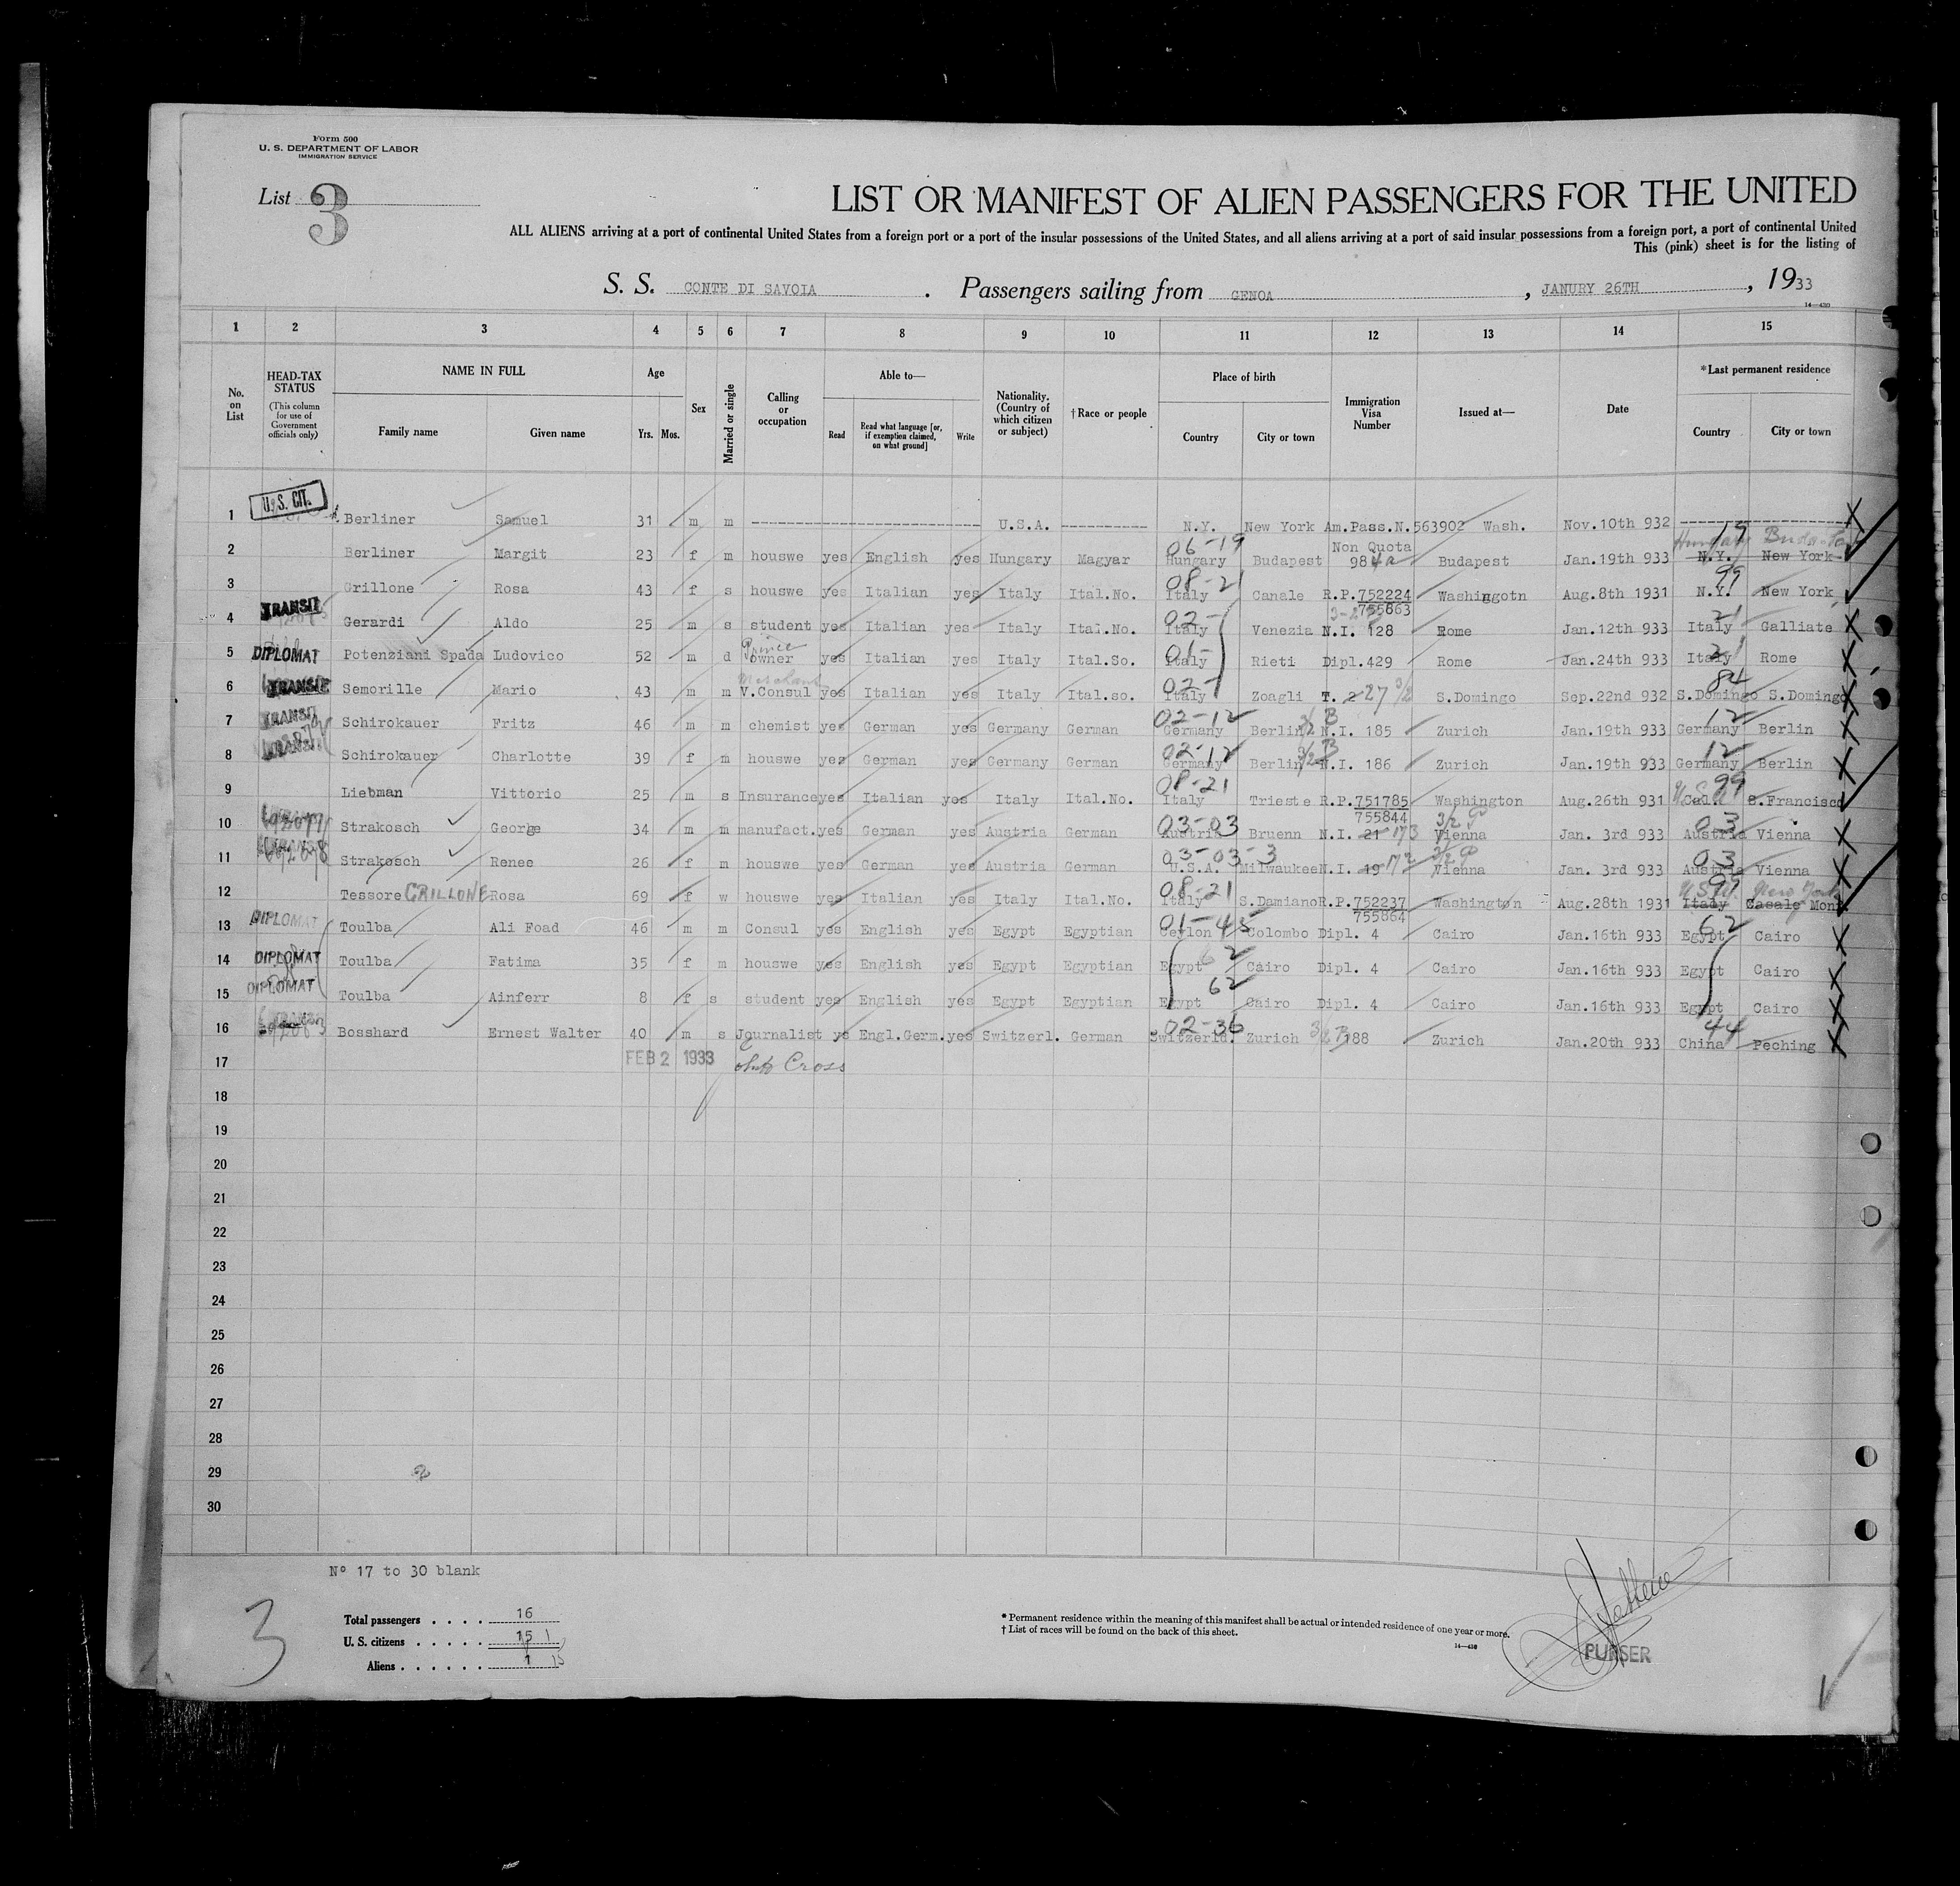 Form 500
U. S. DEPARTMENT OF LABOR
IMMIGRATION SERVICE
List 3
LIST OR MANIFEST OF ALIEN PASSENGERS FOR THE UNITED
ALL ALIENS arriving at a port of continental United States from a foreign port or a port of the insular possessions of the United States, and all aliens arriving at a port of said insular possessions from a foreign port, a port of continental United
This (pink) sheet is for the listing of
S. S. CONTE DI SAVOIA . Passengers sailing from GENOA , JANURY 26TH , 1933
14—430
1 2 3 4 5 6 7 8 9 10 11 12 13 14 15
No. on List
HEAD-TAX STATUS
(This column for use of Government officials only)
NAME IN FULL
Family name Given name
Age
Yrs. Mos.
Sex
Married or single
Calling or occupation
Able to—
Read
Read what language [or, if exemption claimed, on what ground]
Write
Nationality. (Country of which citizen or subject)
†Race or people
Place of birth
Country City or town
Immigration Visa Number
Issued at—
Date
*Last permanent residence
Country City or town
1 U.S. CIT. Berliner Samuel 31 m m U.S.A. N.Y. New York Am.Pass.N.563902 Wash. Nov.10th 932
06-19 Non Quota 19 Hungary
2 Berliner Margit 23 f m houswe yes English yes Hungary Magyar Hungary Budapest 984a Budapest Jan.19th 933 N.Y. New York
08-21 99
3 Grillone Rosa 43 f s houswe yes Italian yes Italy Ital.No. Italy Canale R.P.752224 Washingotn Aug.8th 1931 N.Y. New York
755863
4 TRANSIT Gerardi Aldo 25 m s student yes Italian yes Italy Ital.No. 02- Italy Venezia N.I. 128 Rome Jan.12th 933 21 Italy Galliate
Prince
5 DIPLOMAT Potenziani Spada Ludovico 52 m d owner yes Italian yes Italy Ital.So. 01- Italy Rieti Dipl.429 Rome Jan.24th 933 21 Italy Rome
Merchant
6 TRANSIT Semorille Mario 43 m m V.Consul yes Italian yes Italy Ital.so. 02- Italy Zoagli T. 2 27 3/2 S.Domingo Sep.22nd 932 84 S.Domingo S.Domingo
7 TRANSIT Schirokauer Fritz 46 m m chemist yes German yes Germany German 02-12 Germany Berlin 3/2 B N.I. 185 Zurich Jan.19th 933 12 Germany Berlin
8 TRANSIT Schirokauer Charlotte 39 f m houswe yes German yes Germany German 02-12 Germany Berlin 3/2 B N.I. 186 Zurich Jan.19th 933 12 Germany Berlin
9 Liebman Vittorio 25 m s Insurance yes Italian yes Italy Ital.No. 08-21 Italy Trieste R.P.751785 Washington Aug.26th 931 99 Cal. S.Francisco
755844
10 Strakosch George 34 m m manufact. yes German yes Austria German 03-03 Austria Bruenn N.I. 21 173 3/2 Vienna Jan. 3rd 933 03 Austria Vienna
11 Strakosch Renee 26 f m houswe yes German yes Austria German 03-03-3 U.S.A. Milwaukee N.I. 19 172 3/2 Vienna Jan. 3rd 933 03 Austria Vienna
12 Tessore GRILLONE Rosa 69 f w houswe yes Italian yes Italy Ital.No. 08-21 Italy S.Damiano R.P.752237 Washington Aug.28th 1931 99 New York Italy Casale Monf.
755864
13 DIPLOMAT Toulba Ali Foad 46 m m Consul yes English yes Egypt Egyptian 01-45 Ceylon Colombo Dipl. 4 Cairo Jan.16th 933 62 Egypt Cairo
14 DIPLOMAT Toulba Fatima 35 f m houswe yes English yes Egypt Egyptian 62 Egypt Cairo Dipl. 4 Cairo Jan.16th 933 Egypt Cairo
15 DIPLOMAT Toulba Ainferr 8 f s student yes English yes Egypt Egyptian 62 Egypt Cairo Dipl. 4 Cairo Jan.16th 933 Egypt Cairo
16 Bosshard Ernest Walter 40 m s Journalist ye Engl.Germ. yes Switzerl. German 02-36 Switzerld. Zurich 3/2 B 188 Zurich Jan.20th 933 44 China Peching
17 FEB 2 1933 Cross
18
19
20
21
22
23
24
25
26
27
28
29
30
Nº 17 to 30 blank
3
Total passengers . . . . 16
U. S. citizens . . . . . 15 1
Aliens . . . . . . 1 15
* Permanent residence within the meaning of this manifest shall be actual or intended residence of one year or more.
† List of races will be found on the back of this sheet.
14—430
PURSER